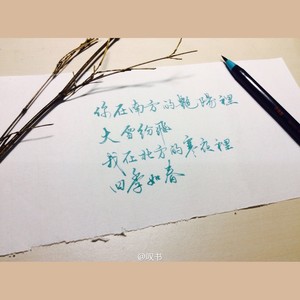 你在南方的艳阳里
大雪纷飞
我在北方的寒夜裡
四季如春